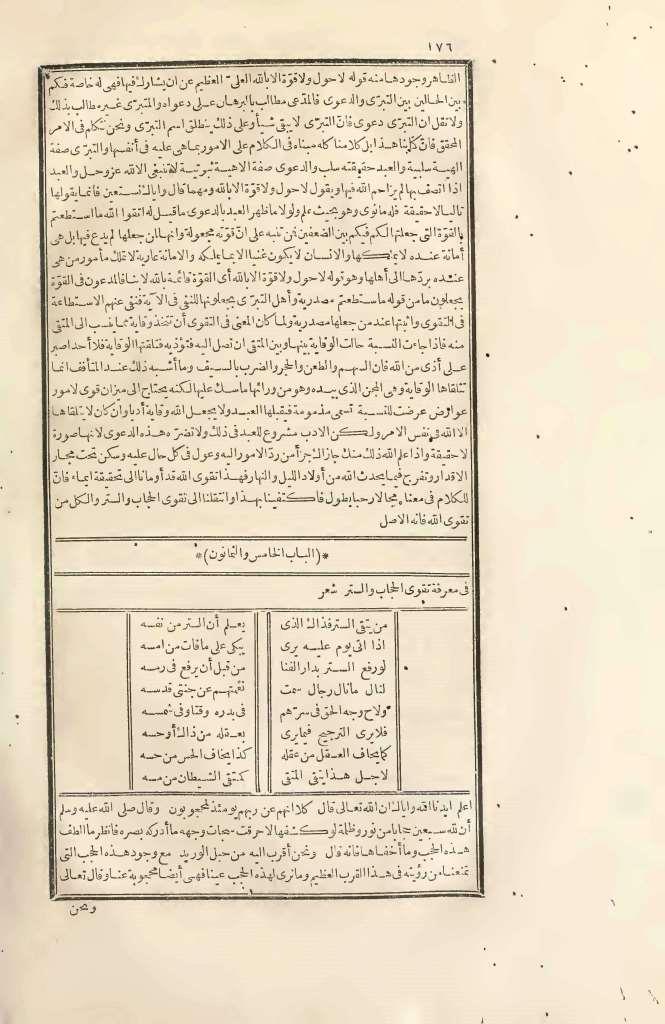 ١٧٦
الظاهر وجودها منه قوله لا حول ولا قوة الا بالله العلى العظيم عن ان يشارك فيها فهى له خاصة فكم
بين الحالين بين التبرى والدعوى فالمدعى مطالب بالبرهان على دعواه والمتبرى غير مطالب بذلك
ولا تقل ان التبرى دعوى فان التبرى لا يبقى شيأ وعلى ذلك ينطلق اسم التبرى ونحن نتكلم فى الامر
المحقق فان كتابنا هذا بل كلامنا كله مبناه فى الكلام على الامور بما هى عليه فى أنفسها والتبرى صفة
الهية سلبية والعبد حقيقته سلب والدعوى صفة الاهية ثبوتية لا تنبغى الا لله عز وجل والعبد
اذا اتصف بها لم يزاحم الله فيها ويقول لا حول ولا قوة الا بالله ومهما قال واياك نستعين فانما يقولها
تاليا لا حقيقة فله ما نوى وهو بحيث علم ولولا ما ظهر العبد بالدعوى ما قيل له اتقوا الله ما استطعتم
بالقوة التى جعلتها لكم فيكم بين الضعفين فمن تنبه على ان قوته مجعولة وانها لمن جعلها لم يدع فيها بل هى
أمانة عنده لا يملكها والانسان لا يكون غنيا الا بما يملكه والامانة عارية لا تملك مأمور من هى
عنده بردها الى أهلها وهو قوله لا حول ولا قوة الا بالله أى القوة قائمة بالله لا بنا فالمدعون فى القوة
يجعلون ما من قوله ما استطعتم مصدرية وأهل التبرى يجعلونها للنفى فى الآية فنفى عنهم الاستطاعة
فى التقوى واثبتها عند من جعلها مصدرية ولما كان المعنى فى التقوى أن تتخذ وقاية مما ينسب الى المتقى
منه فاذا جاءت النسبة حالت الوقاية بينها وبين المتقى ان تصل اليه فتؤذيه فتلقتها الوقاية فلا أحد اصبر
على أذى من الله فان السهم والطعن والحجر والضرب بالسيف وما أشبه ذلك عند المثاقف انما
تتلقاها الوقاية وهى المجن الذى بيده وهو من ورائها ماسك عليها لكنه يحتاج الى ميزان قوى لامور
عوارض عرضت للنسبة تسمى مذمومة فيقبلها العبد ولا يجعل الله وقاية أدبا وان كان لا يتلقاها
الا الله فى نفس الامر ولكن الادب مشروع للعبد فى ذلك ولا تضره هذه الدعوى لانها صورة
لا حقيقة واذا علم الله ذلك منك جازاك جزاء من رد الامور اليه وعول فى كل حال عليه وسكن تحت مجارى
الاقدار وتفرج فيما يحدث الله من أولاد الليل والنهار فهذا تقوى الله قد أومأنا الى تحقيقه ايماء فان
للكلام فى معناه مجالا رحبا يطول فاكتفينا بهذا وانتقلنا الى تقوى الحجاب والستر والكل من
تقوى الله فانه الاصل
*(الباب الخامس والثمانون)*
فى معرفة تقوى الحجاب والستر شعر
من يتقى الستر فذاك الذى يعلم أن الستر من نفسه
اذا اتى يوم عليه يرى يبكى على ما فات من امسه
لو رفع الستر بدار الفنا من قبل أن يرفع فى رمسه
لنال ما نال رجال سمت نهمتهم عن جنتى قدسه
ولاح وجه الحق فى سرهم فى بدره وقتا وفى شمسه
فلا يرى الترجيح فيما يرى بعقله من ذاك أو حسه
كما يخاف العقل من عقله كذا يخاف الحس من حسه
لاجل هذا يتقى المتقى كمتقى الشيطان من مسه
اعلم ايدنا الله واياك ان الله تعالى قال كلا انهم عن ربهم يومئذ لمحجوبون وقال صلى الله عليه وسلم
أن لله سبعين حجابا من نور وظلمة لو كشفها لاحرقت سبحات وجهه ما أدركه بصره فانظر ما الطف
هذه الحجب وما أخفاها فانه قال ونحن أقرب اليه من حبل الوريد مع وجود هذه الحجب التى
تمنعنا من رؤيته فى هذا القرب العظيم وما نرى لهذه الحجب عينا فهى أيضا محجوبة عنا وقال تعالى
ونحن